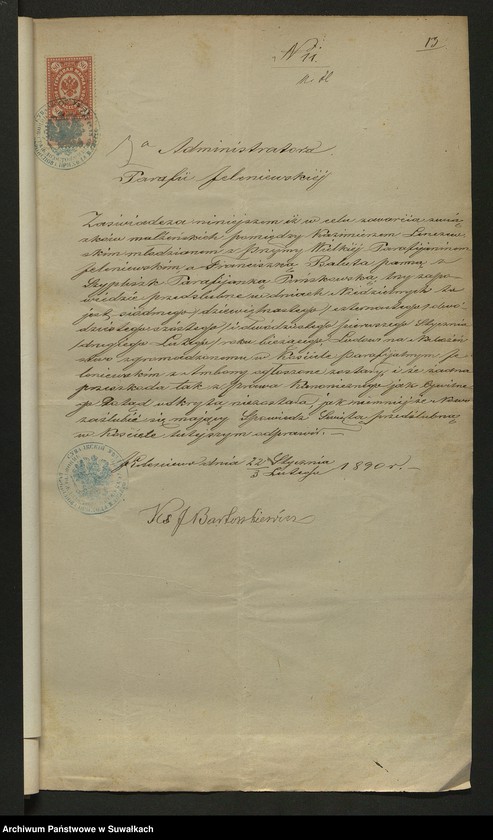 13
N 11.
Administratora
Parafii Jeleniewskiéj
Zaświadcza niniejszem iż w celu zawarcia zwią-
zków małżeńskich pomiędzy Kazimierzem
skim młodzianem z Prejmy Wielkiéj Parafijaninem
Jeleniewskim a Franciszką Baluta panną z
Szypliszk Parafijanką Puńskowską, trzy zapo-
wiedzie przedślubne w dniach Niedzielnych to
jest siódmego /dziewiętnastego/ czternastego /dwó-
dziestego szóstego/ i dwódziestego pierwszego Stycznia
/drugiego Lutego/ roku bieżącego Ludowi na Nabożeń
stwo zgromadzonemu w Kościele parafijalnym Je-
leniewskim z Ambony ogłoszone zostały, i że żadna
przeszkoda tak z prawa Kanonicznego jak Cywilne-
go Dotąd odkrytą niezostała, jak niemniéj że Nowo
zaślubić się mający Spowiedź Świętą przedślubną
w Kościele tutejszym odprawił. —
Jeleniewo dnia 22 Stycznia
3 Lutego 1890 r. —
Xs J Bartoszkiewicz
Archiwum Państwowe w Suwałkach